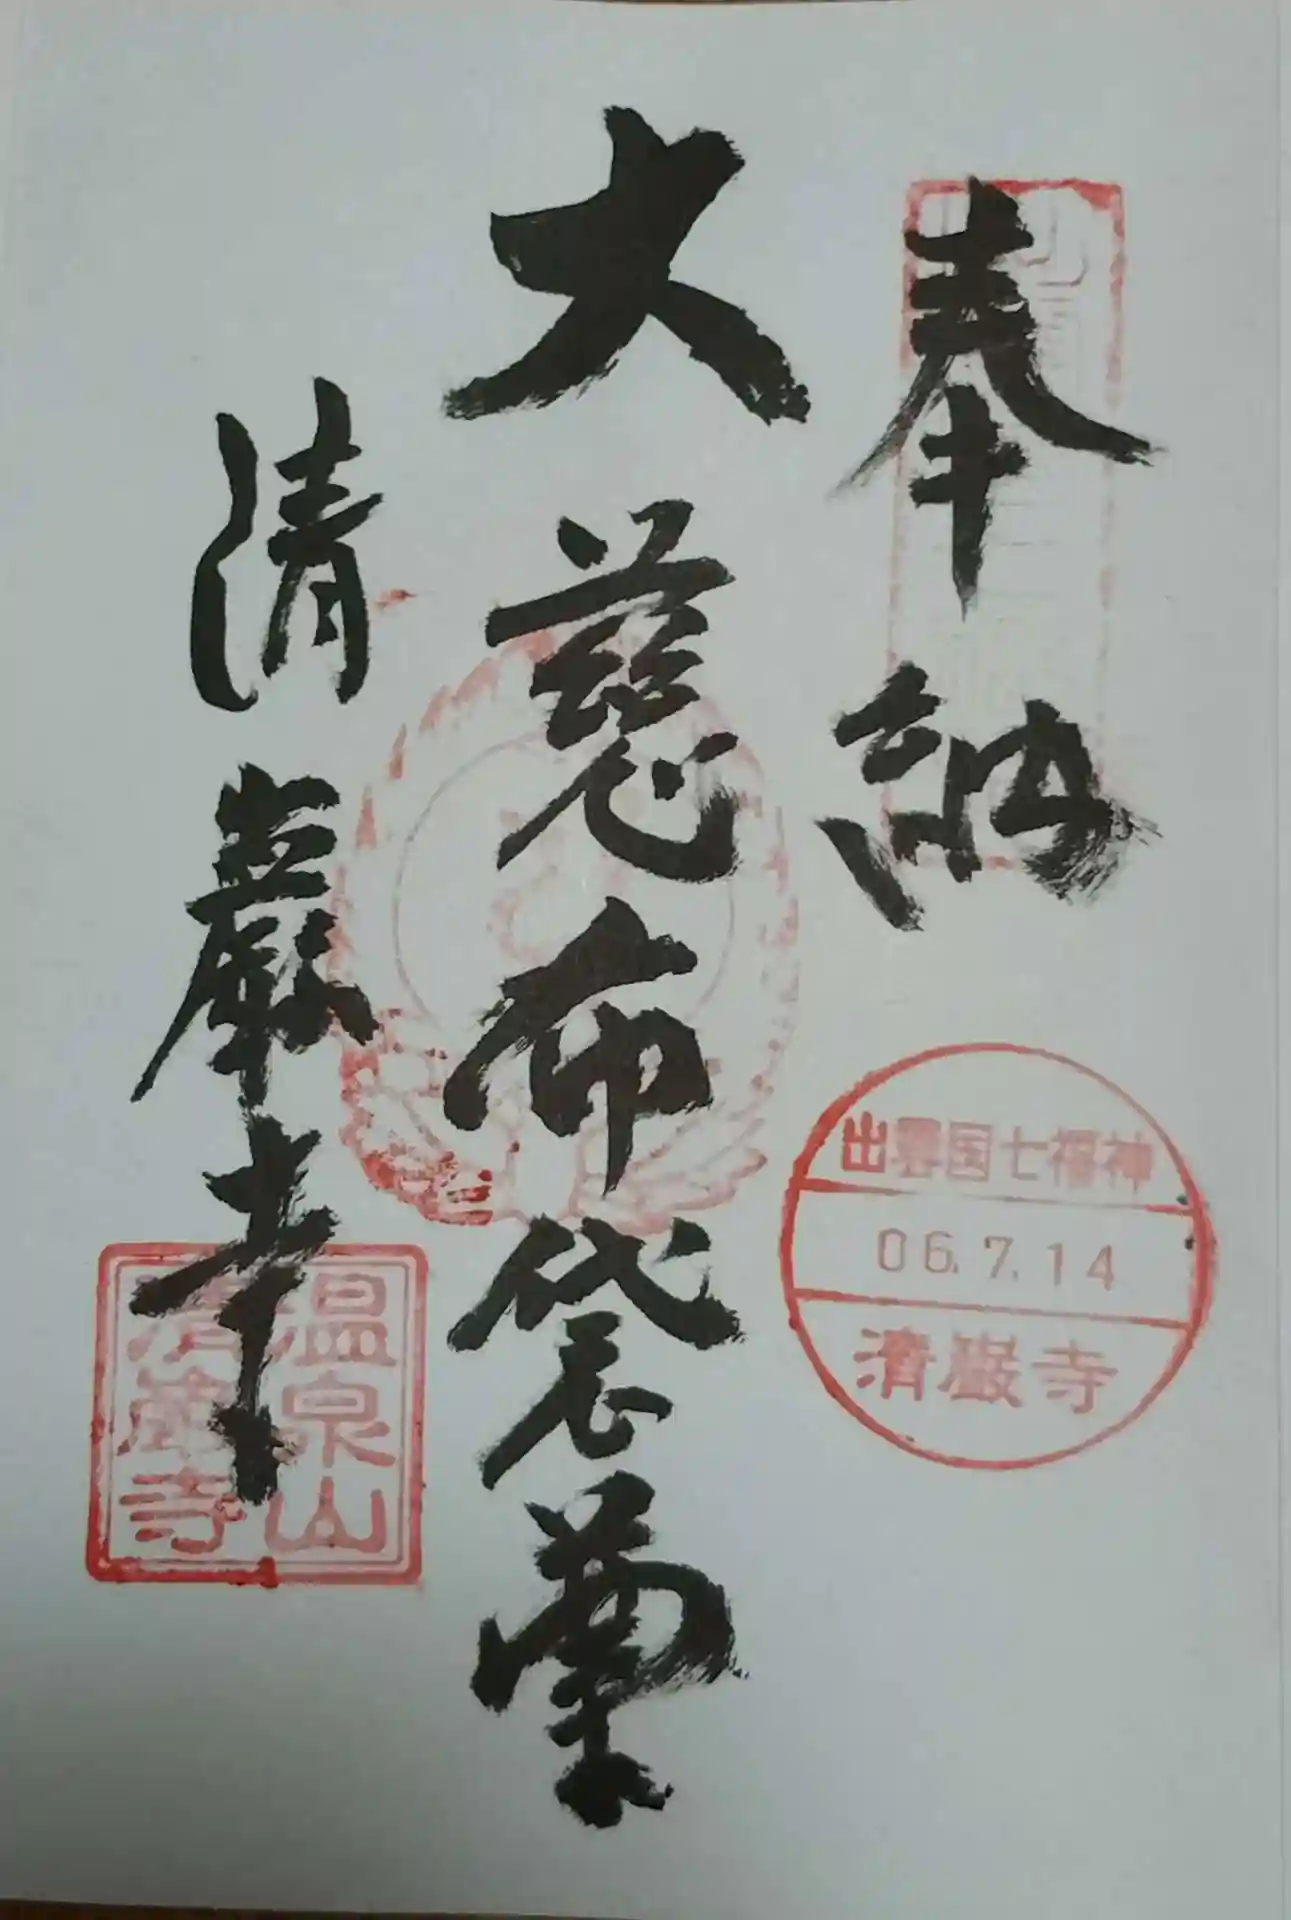 奉納
大慈布袋尊
清巌寺
出雲国七福神
06.7.14
清巌寺
温泉山
清巌寺